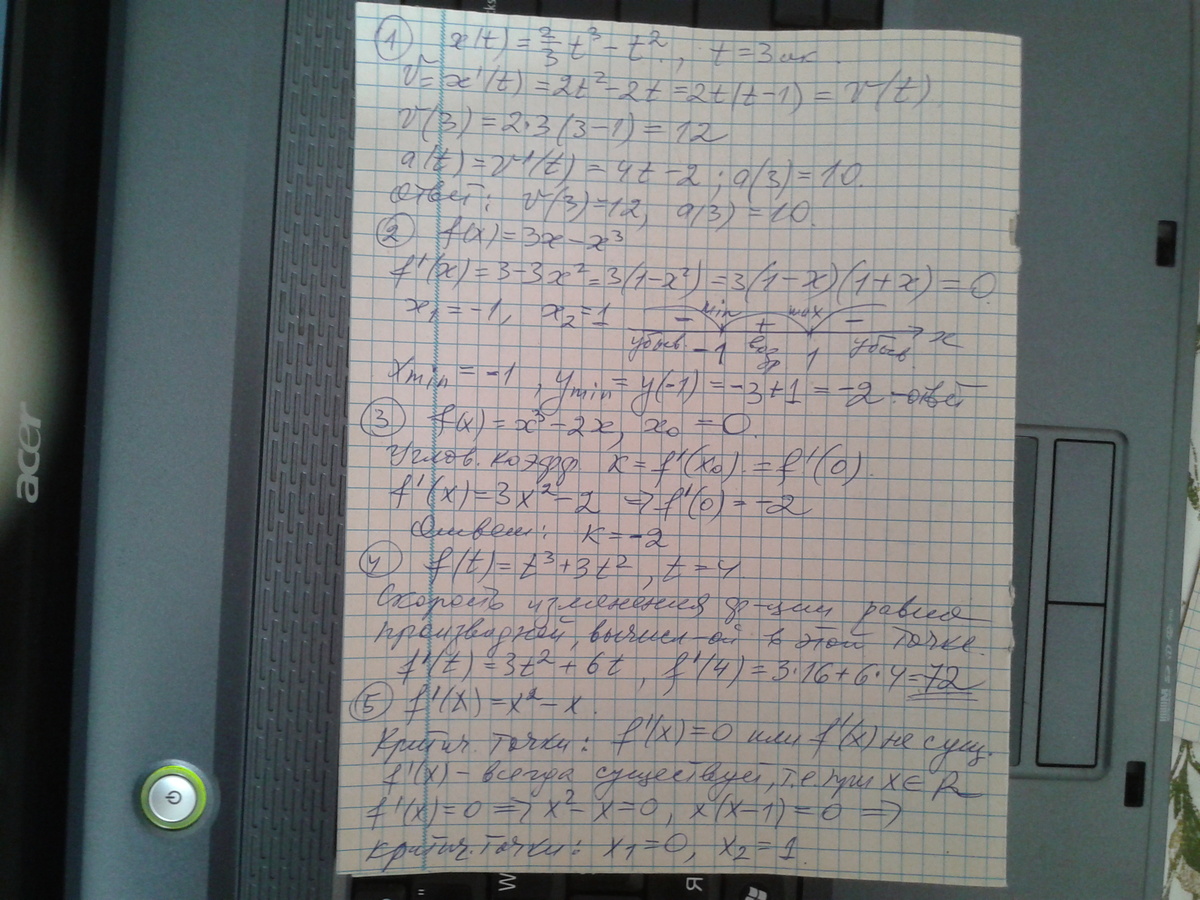 ① x(t) = 2/3 t³ - t², t = 3 сек.
V = x'(t) = 2t² - 2t = 2t(t-1) = V(t)
V(3) = 2·3(3-1) = 12
a(t) = V'(t) = 4t - 2; a(3) = 10.
Ответ: V(3) = 12, a(3) = 10.
② f(x) = 3x - x³
f'(x) = 3 - 3x² = 3(1-x²) = 3(1-x)(1+x) = 0
x₁ = -1, x₂ = 1 - min + max - x
убыв. -1 возр 1 убыв.
x min = -1, y min = y(-1) = -3+1 = -2 - ответ
③ f(x) = x³ - 2x, x₀ = 0.
Углов. коэфф. k = f'(x₀) = f'(0).
f'(x) = 3x² - 2 ⇒ f'(0) = -2
Ответ: k = -2
④ f(t) = t³ + 3t², t = 4
Скорость изменения ф-ции равна
производной, вычисл-ой в этой точке.
f'(t) = 3t² + 6t, f'(4) = 3·16 + 6·4 = 72
⑤ f'(x) = x² - x.
Критич. точки: f'(x) = 0 или f'(x) не сущ.
f'(x) - всегда существует, т.е. при x ∈ R
f'(x) = 0 ⇒ x² - x = 0, x(x-1) = 0 ⇒
критич. точки: x₁ = 0, x₂ = 1.
acer
W
Я
"